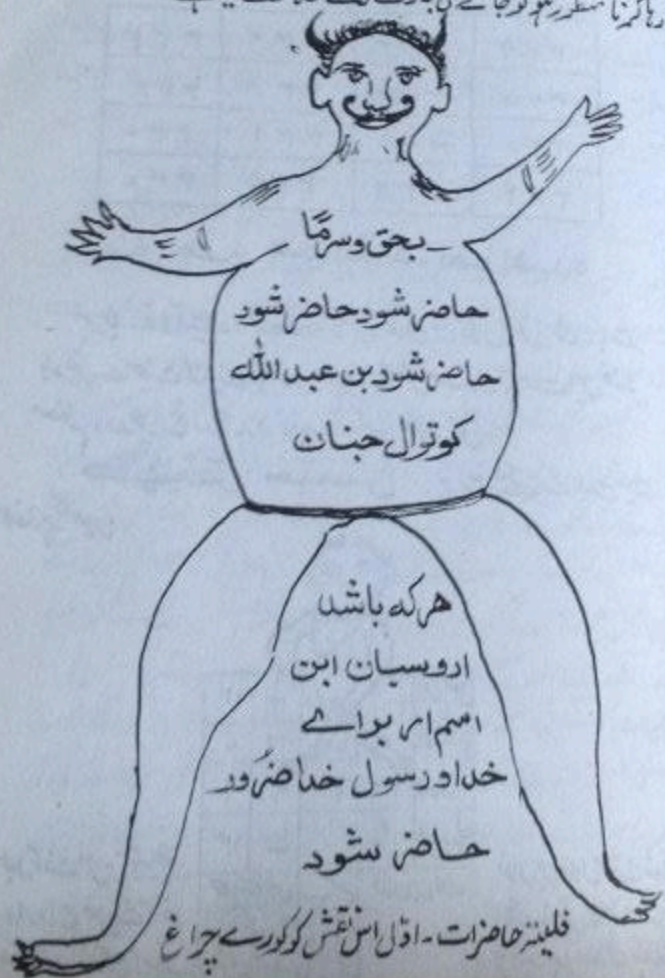 بحق وسرمًا
حاضر شود حاضر شود
حاضر شود بن عبد اللّٰه
کوتوال جنان
هرکه باشد
ادوسیان ابن
اسم ام براے
خدا ورسول خدا ضرور
حاضر شود
فلیتہ حاضرات۔ اوّل اس نقش کو کورے چراغ